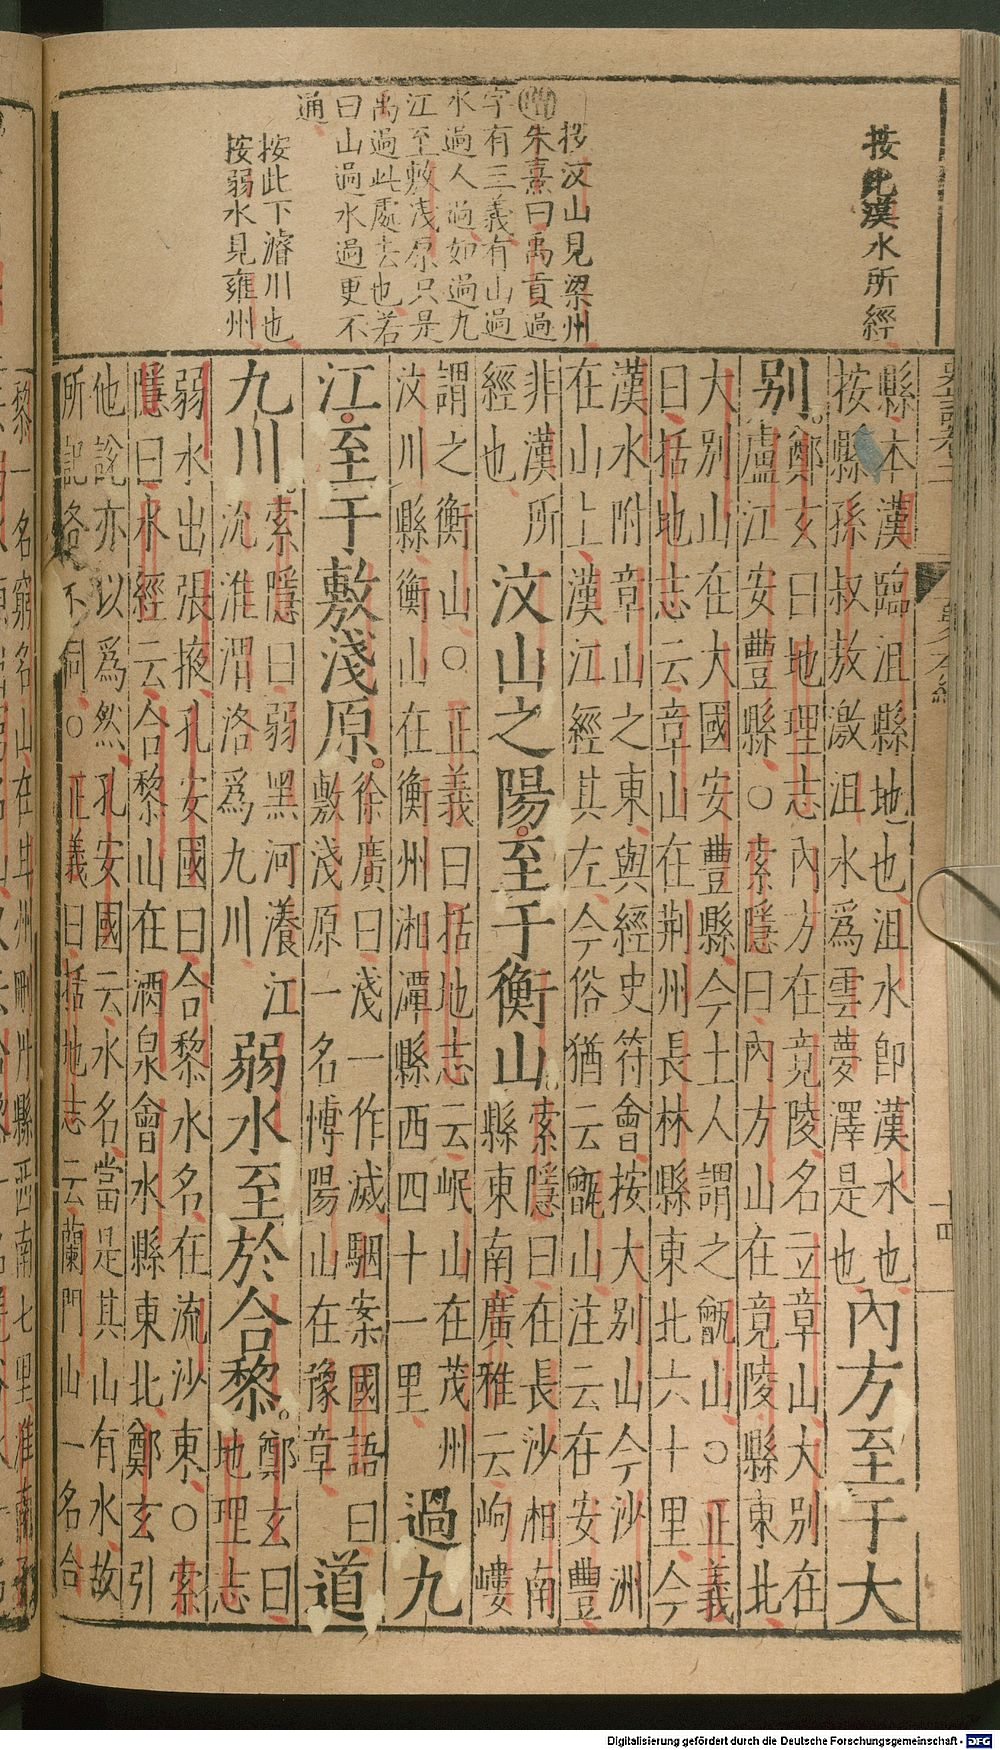 按此漢水所經
按汶山見梁州
增朱熹曰禹貢過
字有三義有山過
水過人過如過九
江至敷淺原只是
禹過此處去也若
曰山過水過更不
通
按此下濬川也
按弱水見雍州
史記卷二
夏本紀
十四
縣本漢臨沮縣地也沮水卽漢水也
按縣孫叔敖激沮水爲雲夢澤是也
內方至于大
別
鄭玄曰地理志內方在竟陵名立章山大別在
廬江安豐縣○索隱曰內方山在竟陵縣東北
大別山在大國安豐縣今土人謂之甑山○正義
曰括地志云章山在荆州長林縣東北六十里今
漢水附章山之東與經史符會按大別山今沙洲
在山上漢江經其左今俗猶云甑山注云在安豐
非漢所
經也
汶山之陽至于衡山
索隱曰在長沙相南
縣東南廣雅云岣嶁
謂之衡山○正義曰括地志云岷山在茂州
汶川縣衡山在衡州湘潭縣西四十一里
過九
江至于敷淺原
徐廣曰淺一作滅駰案國語曰
敷淺原一名博陽山在豫章
道
九川
索隱曰弱黑河瀁江
沇淮渭洛爲九川
弱水至於合黎
鄭玄曰
地理志
弱水出張掖孔安國曰合黎水名在流沙東○索
隱曰水經云合黎山在酒泉會水縣東北鄭玄引
他說亦以爲然孔安國云水名當是其山有水故
所記各不同○正義曰括地志云蘭門山一名合
黎一名窮石山在甘州刪丹縣西南七里淮南子
Digitalisierung gefördert durch die Deutsche Forschungsgemeinschaft - DFG